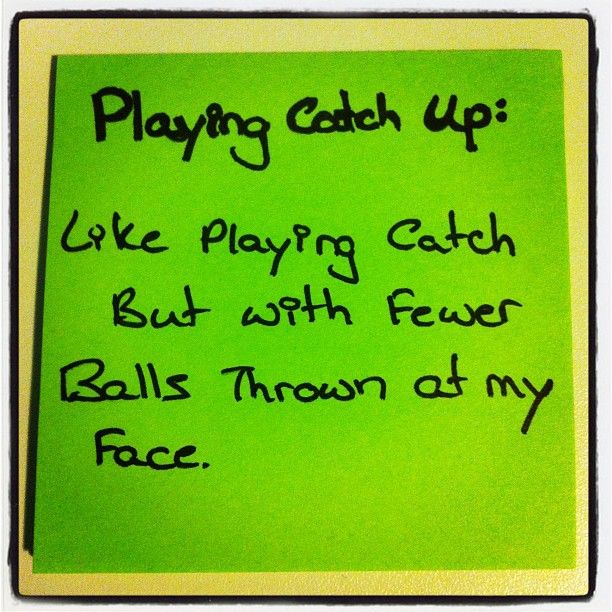 Playing Catch Up:
Like Playing Catch
But with Fewer
Balls Thrown at my
Face.